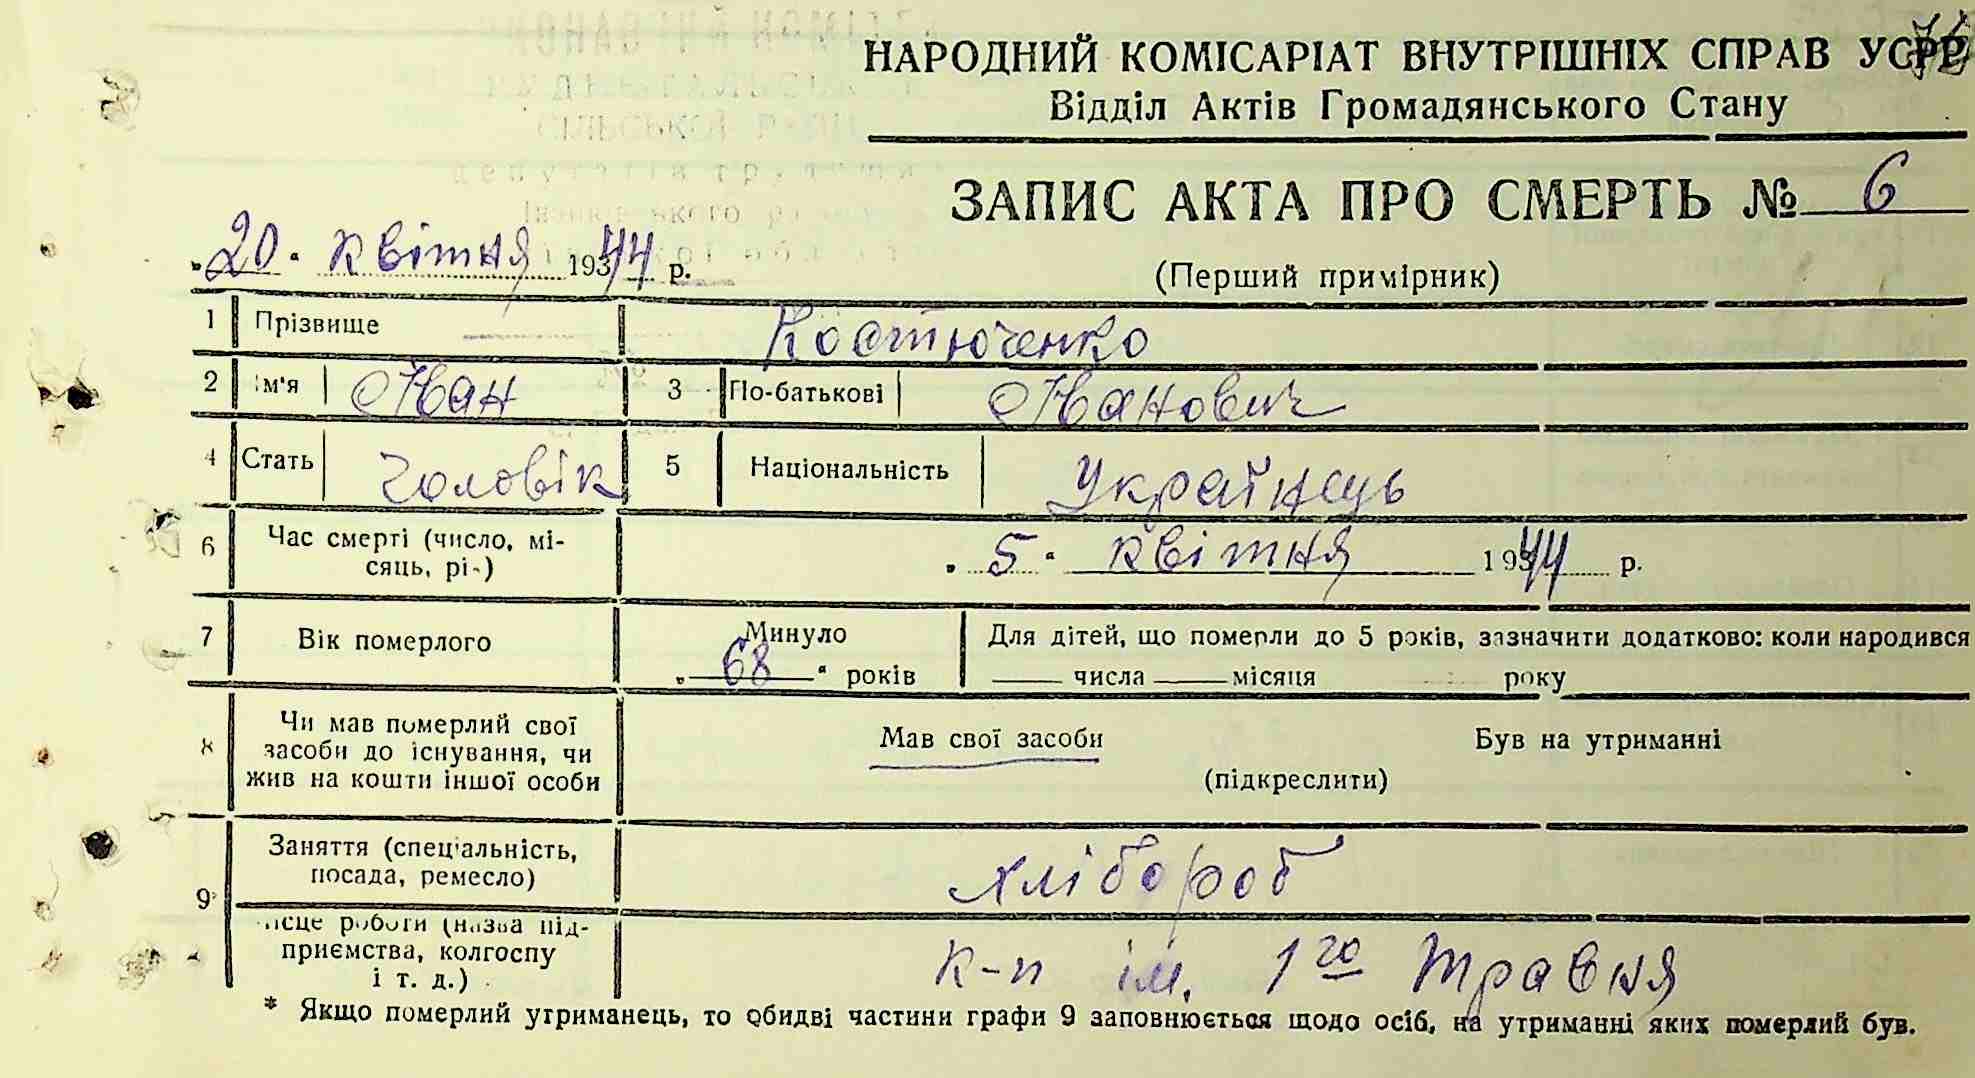 НАРОДНИЙ КОМІСАРІАТ ВНУТРІШНІХ СПРАВ УСРР
Відділ Актів Громадянського Стану
ЗАПИС АКТА ПРО СМЕРТЬ № 6
„20“ квітня 1944 р.
(Перший примірник)
1 Прізвище Костюченко
2 Ім'я Іван 3 По-батькові Іванович
4 Стать Чоловік 5 Національність Українець
6 Час смерті (число, мі-
сяць, рік) „5“ квітня 1944 р.
7 Вік померлого Минуло
„68“ років
Для дітей, що померли до 5 років, зазначити додатково: коли народився
числа місяця року
8 Чи мав померлий свої
засоби до існування, чи
жив на кошти іншої особи
Мав свої засоби Був на утриманні
(підкреслити)
9 Заняття (спеціальність,
посада, ремесло) хлібороб
Місце роботи (назва під-
приємства, колгоспу
і т. д.) к-п ім. 1го Травня
* Якщо померлий утриманець, то обидві частини графи 9 заповнюється щодо осіб, на утриманні яких померлий був.